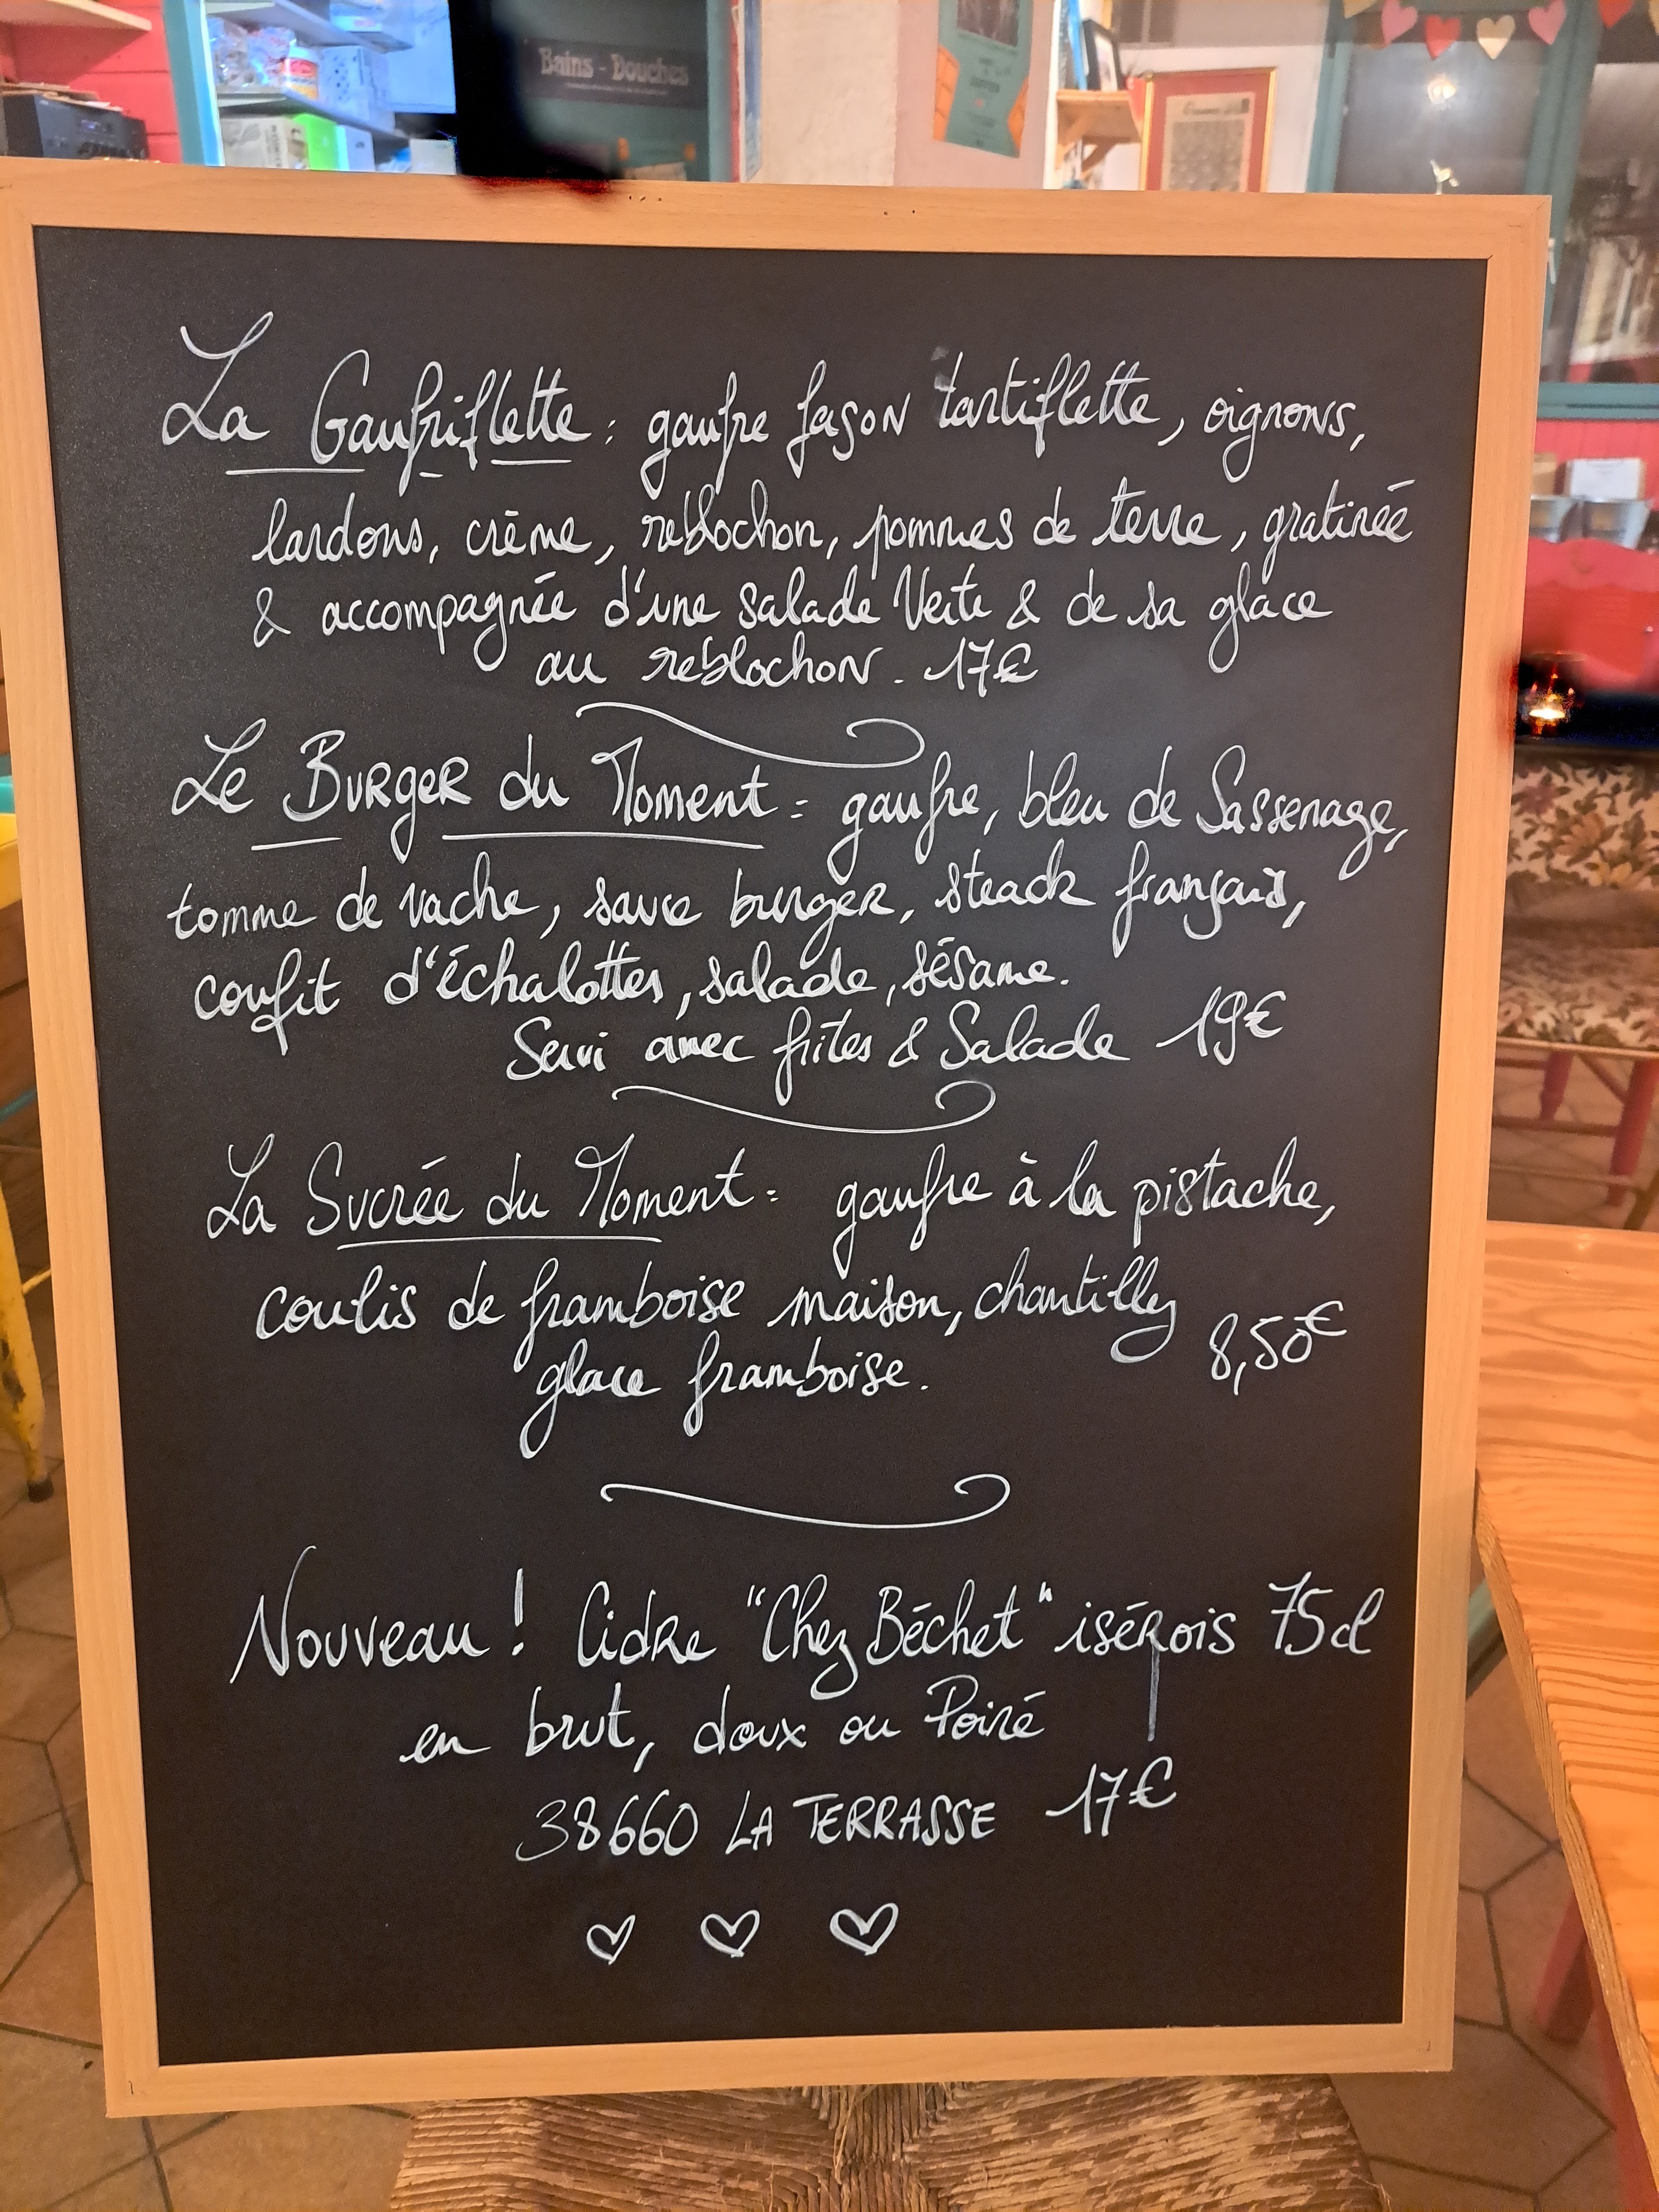 Bains - Douches
La Gaufriflette : gaufre façon tartiflette, oignons,
lardons, crème, reblochon, pommes de terre, gratinée
& accompagnée d'une salade Verte & de sa glace
au reblochon. 17€
Le Burger du Moment : gaufre, bleu de Sassenage,
tomme de vache, sauce burger, steack français,
confit d'échalottes, salade, sésame.
Servi avec frites & Salade 19€
La Sucrée du Moment : gaufre à la pistache,
coulis de framboise maison, chantilly
glace framboise. 8,50€
Nouveau ! Cidre "Chez Béchet" isérois 75cl
en brut, doux ou Poiré
38660 LA TERRASSE 17€